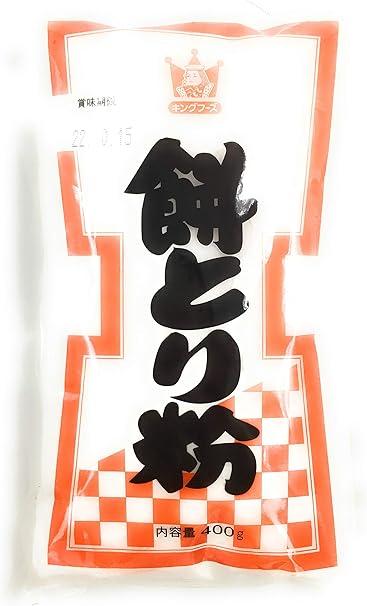 キングフーズ
賞味期限
餅とり粉
内容量 400g